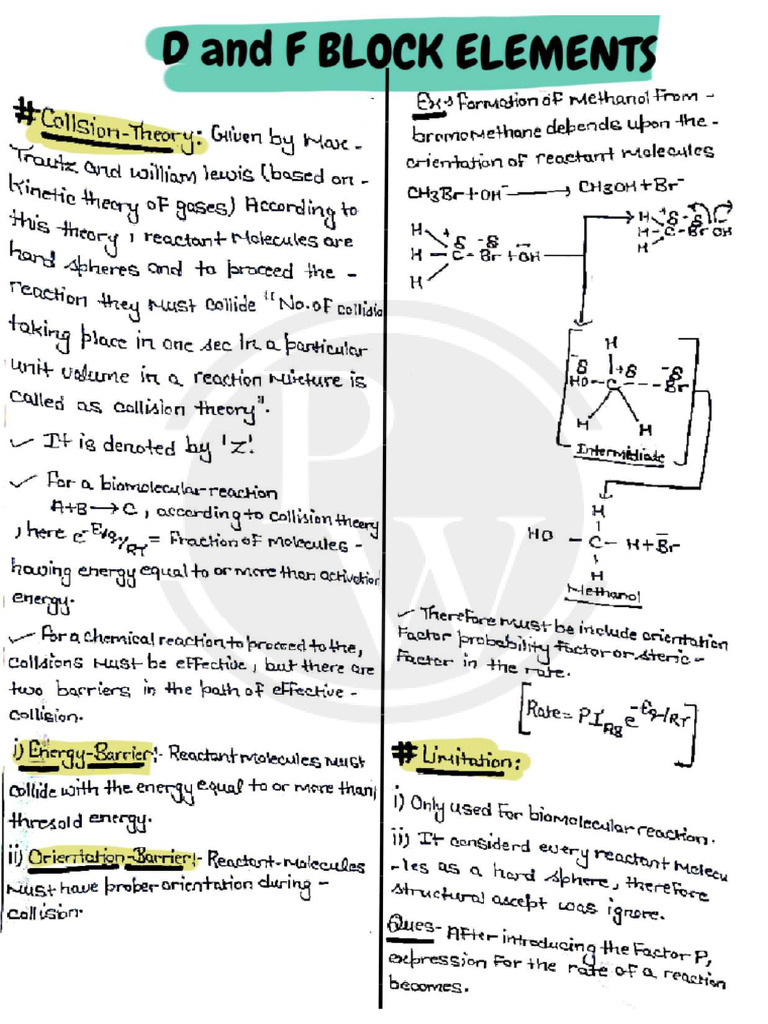 D and F BLOCK ELEMENTS
# Collsion-Theory: Given by Max-
Trautz and william lewis (based on-
kinetic theory of gases) According to
this theory, reactant molecules are
hard spheres and to proceed the-
reaction they must collide "No. of collisio
taking place in one sec in a particular
unit volume in a reaction mixture is
called as collision theory".
✓ It is denoted by 'Z'.
✓ For a biomolecular-reaction
A+B→C, according to collision theory
, here e^-Ea/RT = Fraction of molecules-
having energy equal to or more than activation
energy.
✓ For a chemical reaction to proceed to the,
collsions must be effective, but there are
two barriers in the path of effective-
collision.
i) Energy-Barrier:- Reactant molecules must
collide with the energy equal to or more than
thresold energy.
ii) Orientation-Barrier:- Reactant-molecules
must have prober orientation during-
collision.
Ex:→ Formation of methanol from-
bromomethane depends upon the-
orientation of reactant molecules
CH3Br+OH⁻ → CH3OH+Br⁻
H H +δ -δ
H - C - Br + OH H - C - Br OH
H H
H
-δ +δ -δ
HO - C - - Br
H H
Intermidiate
H
HO - C - H + Br
H
Methanol
✓ Therefore must be include orientation
Factor probability factor or steric-
Factor in the rate.
[Rate = PZ_AB e^-Ea/RT]
# Limitation:
i) Only used for biomolecular reaction.
ii) It considerd every reactant molecu
-les as a hard sphere, therefore
structural ascept was ignore.
Ques- After introducing the Factor P,
expression for the rate of a reaction
becomes.
PW